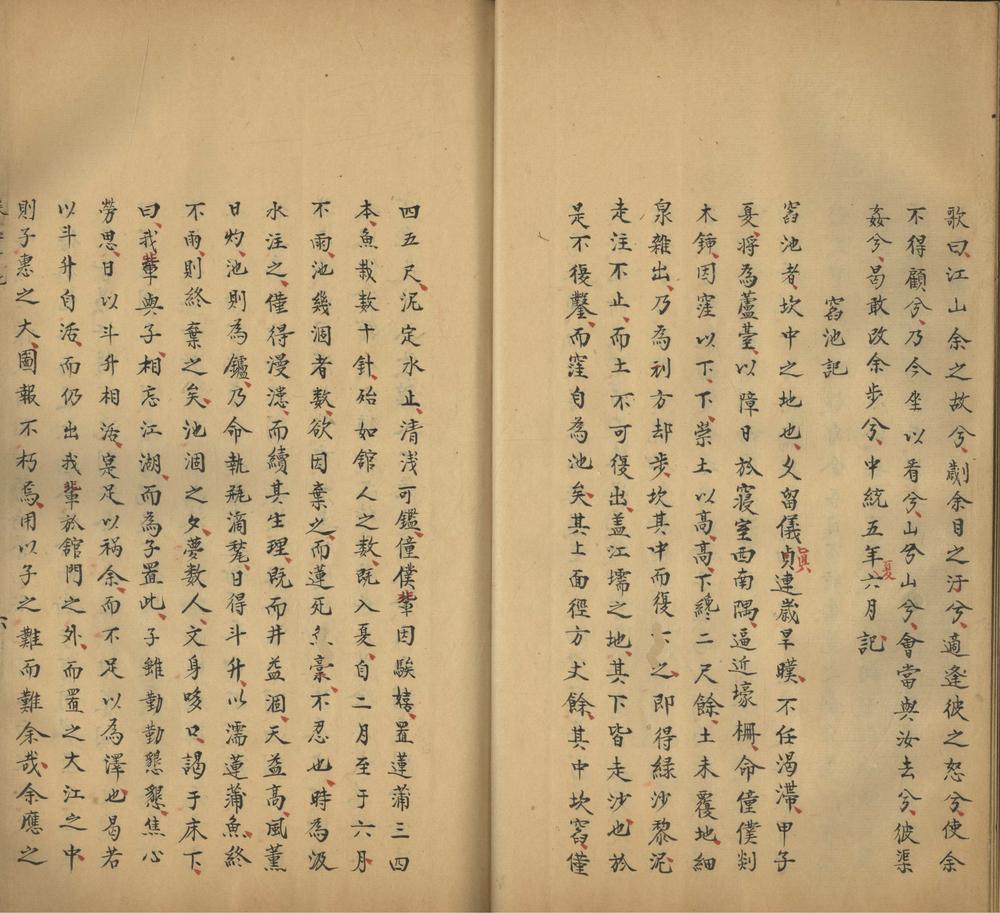 歌曰江山余之故兮劌余目之汙兮適逢彼之怒兮使余
不得顧兮乃今坐以看兮山兮山兮會當與汝去兮彼渠
姦兮曷敢改余步兮中統五年夏六月記
窞池記
窞池者坎中之地也久留儀貞真連歲旱暵不任渴滯甲子
夏將為蘆臺以障日於寢室西南隅逼近壕柵命僮僕剡
木鍤因窪以下下崇土以高高下纔二尺餘土未覆地細
泉雜出乃為刓方却步坎其中而復之即得綠沙黎泥
走注不止而土不可復出蓋江壖之地其下皆走沙也於
是不復鑿而窪自為池矣其上面徑方丈餘其中坎窞僅
四五尺泥定水止清浅可鑑僮僕輩因騃嬉置蓮蒲三四
本魚栽数十針殆如舘人之数既入夏自二月至于六月
不雨池幾涸者数欲因棄之而蓮死魚槀不忍也時為汲
水注之僅得漫漶而續其生理既而井益涸天益高風薰
日灼池則為鑪乃命執瓶滴甃日得斗升以濡蓮蒲魚終
不雨則終棄之矣池涸之夕夢数人文身哆口謁于床下
曰我輩與子相忘江湖而為子置此子雖勤勤懇懇焦心
勞思日以斗升相活寔足以禍余而不足以為澤也曷若
以斗升自活而仍出我輩於舘門之外而置之大江之中
則子惠之大圖報不朽焉用以子之難而難余哉余應之